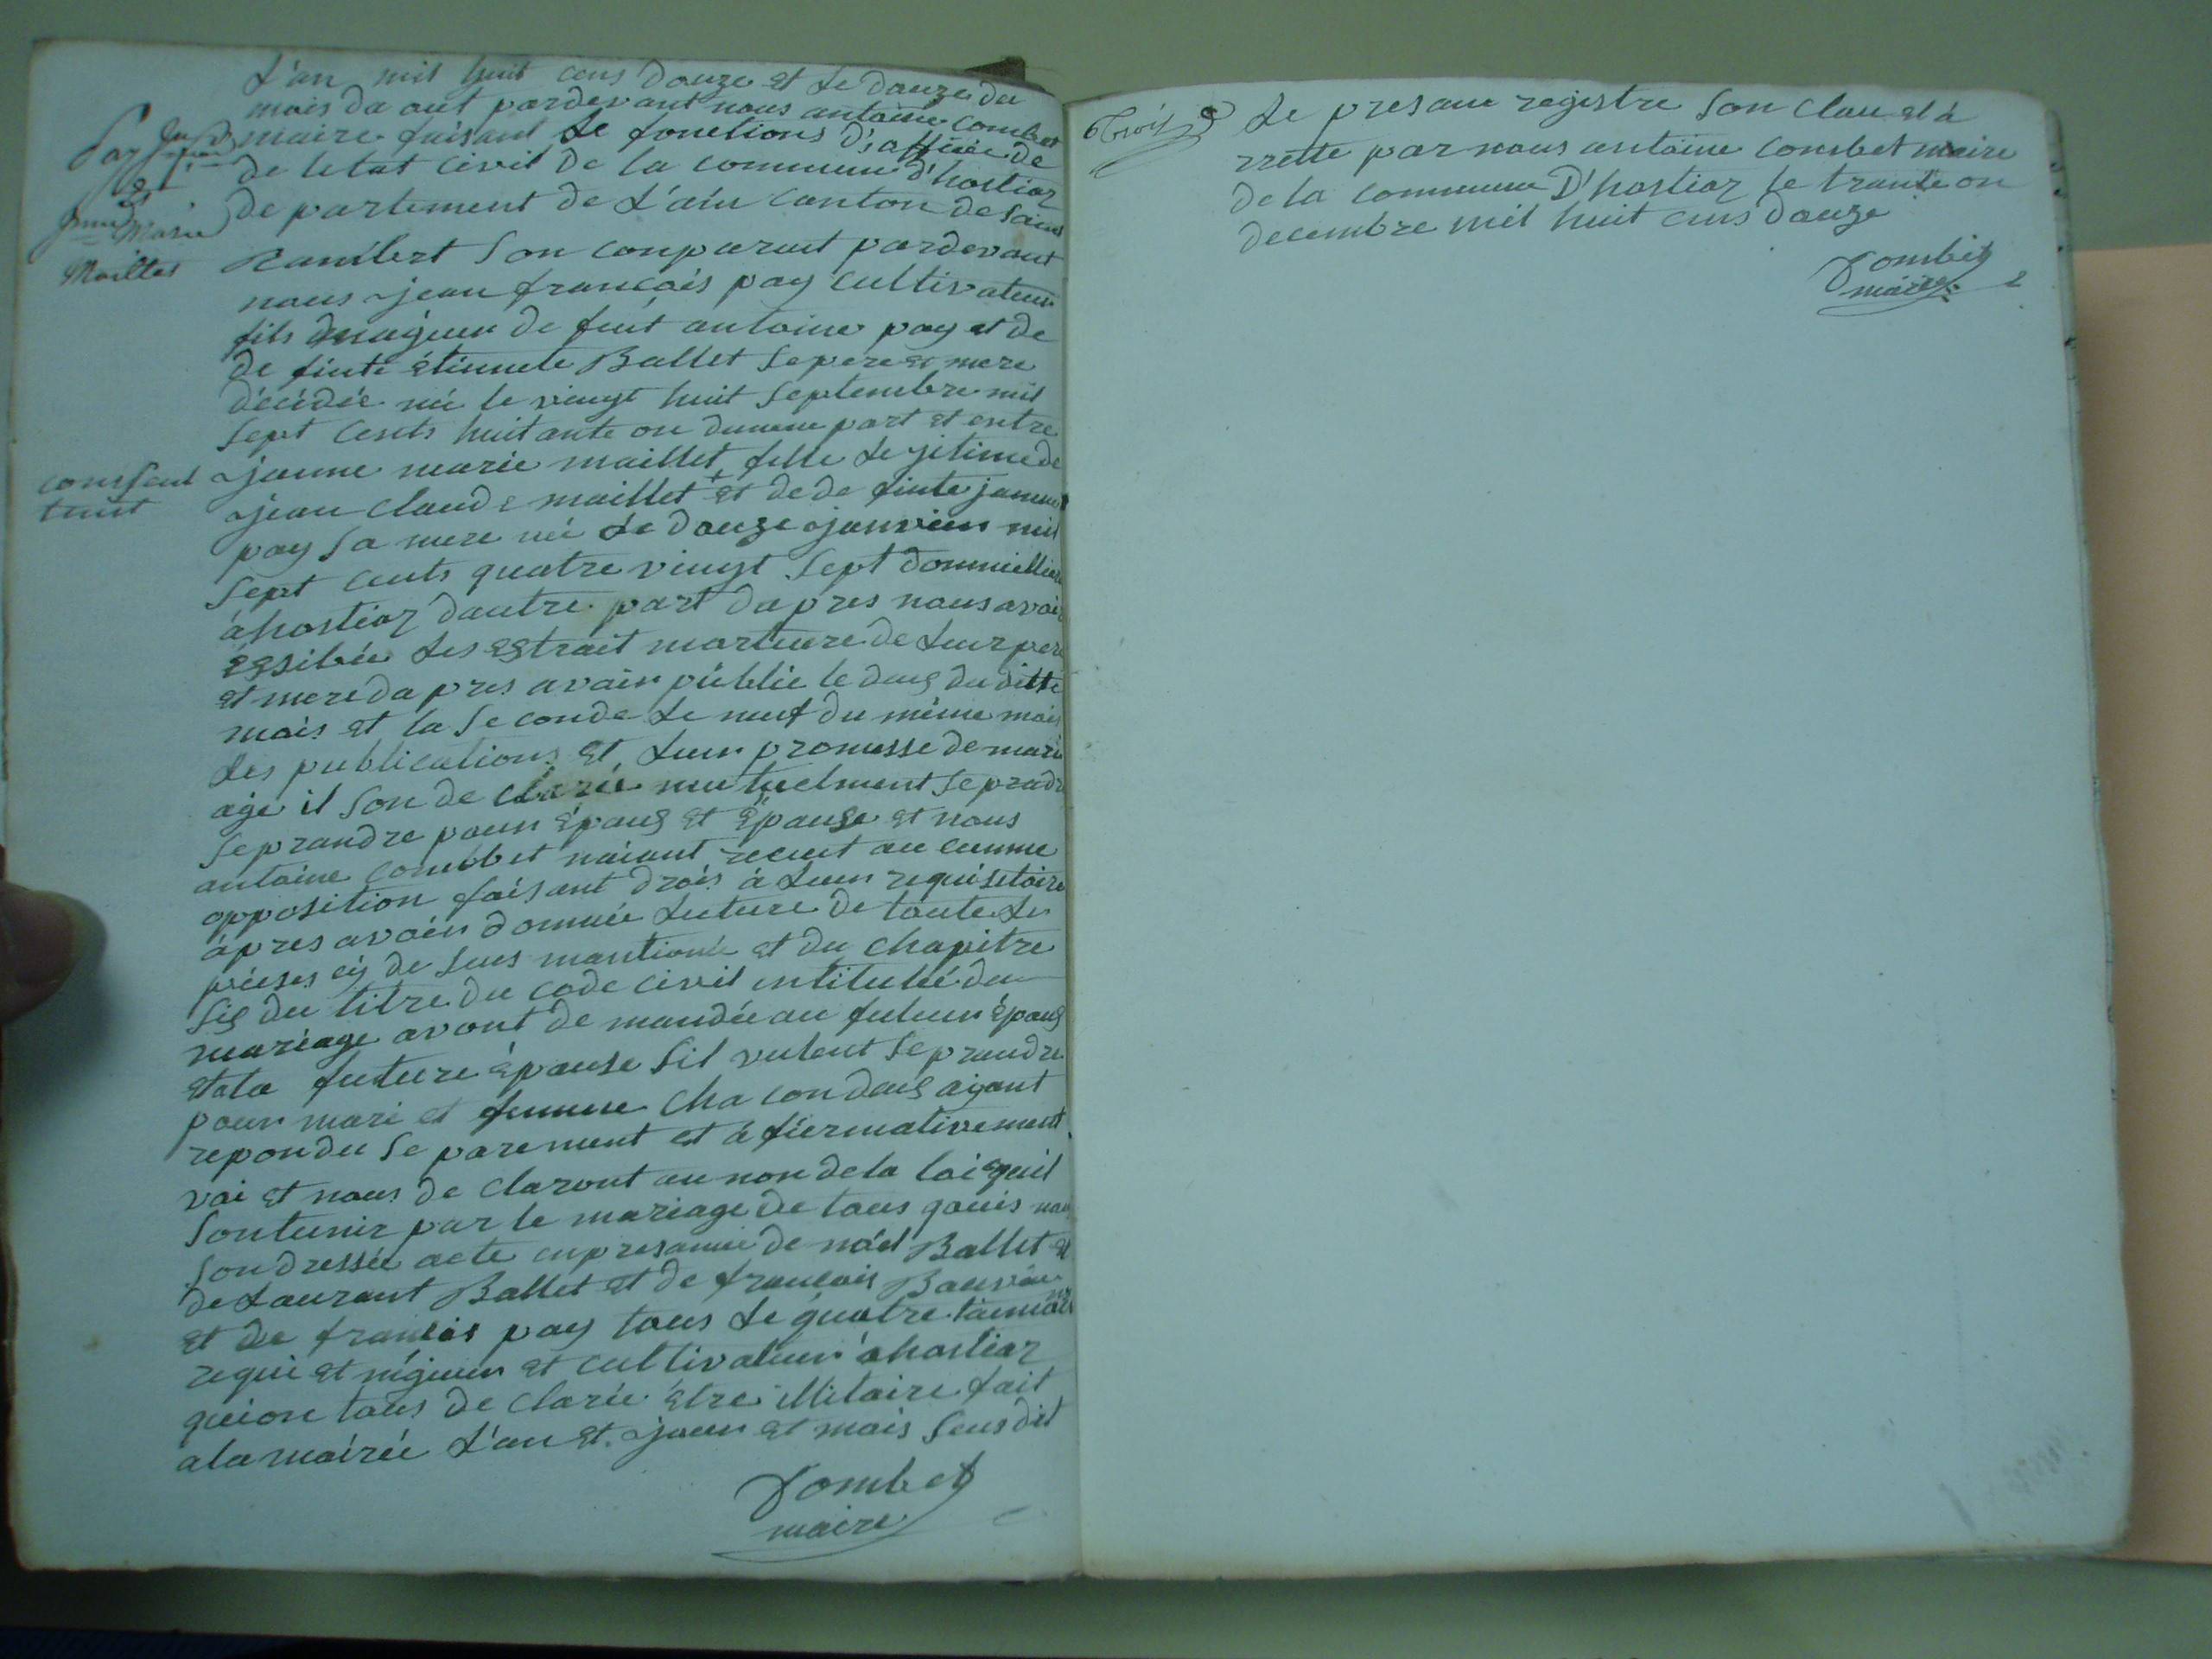 L'an mil huit cens douze et le douze du
mois da out pardevant nous antoine combet
maire faisant le fonctions d'officié de
de letat civil de la commune d'hostiaz
departement de L'ain canton de Saint
Rambert Son comparuit pardevant
nous jean francois pay cultivateur
fils de feut antoine pay et de
de finte étiennete Ballet se pere et mere
décédée né le vingt huit septembre mil
sept cents huitante on dunne part et entre
janne marie maillet fille legitime de
jean claude maillet et de de finte janne
pay sa mere né le douze janvier mil
sept cents quatre vingt sept
á hostiaz dautre part da pres nous avoir
les extrait mortuere de leur pere
et mere da pres avoir publie le deux du ditte
mois et la seconde le neuf du méme mois
les publications et leur promesse de mari
age il son de clarée mutuelment se pradre
se prandre pour époux et épouse et nous
antoine combet naiant recut au cunne
opposition faisant drois á leur requisitoire
ápres avoir donnée lecture de toute les
piéses cy de sus mantionée et du chapitre
six du titre du code civil intitulé du
mariage avont de mandée au futeur époux
et a la future épouse sil vulent se prandre
pour mari et femme cha con deux aiyant
repondu se parement et á fiermativement
vai et nous de claront au non de la loi quil
son tunir par le mariage de tous nous
son dressée acte en presance de noël Ballet et
de Laurant Ballet et de francois
et de francois pay tous le quatre
requi et et cultivateur á hostiaz
quion tous de clarée étre illitaire fait
a la mairée L'an et jour et mois sus dit
Combet
maire
Pay
et
janne Marie
Maillet
Trois
Le presant registre son clau et á
rrette par nous antoine combet maire
de la commune D'hostiaz le trante on
decembre mil huit cens douze
Combet
maire